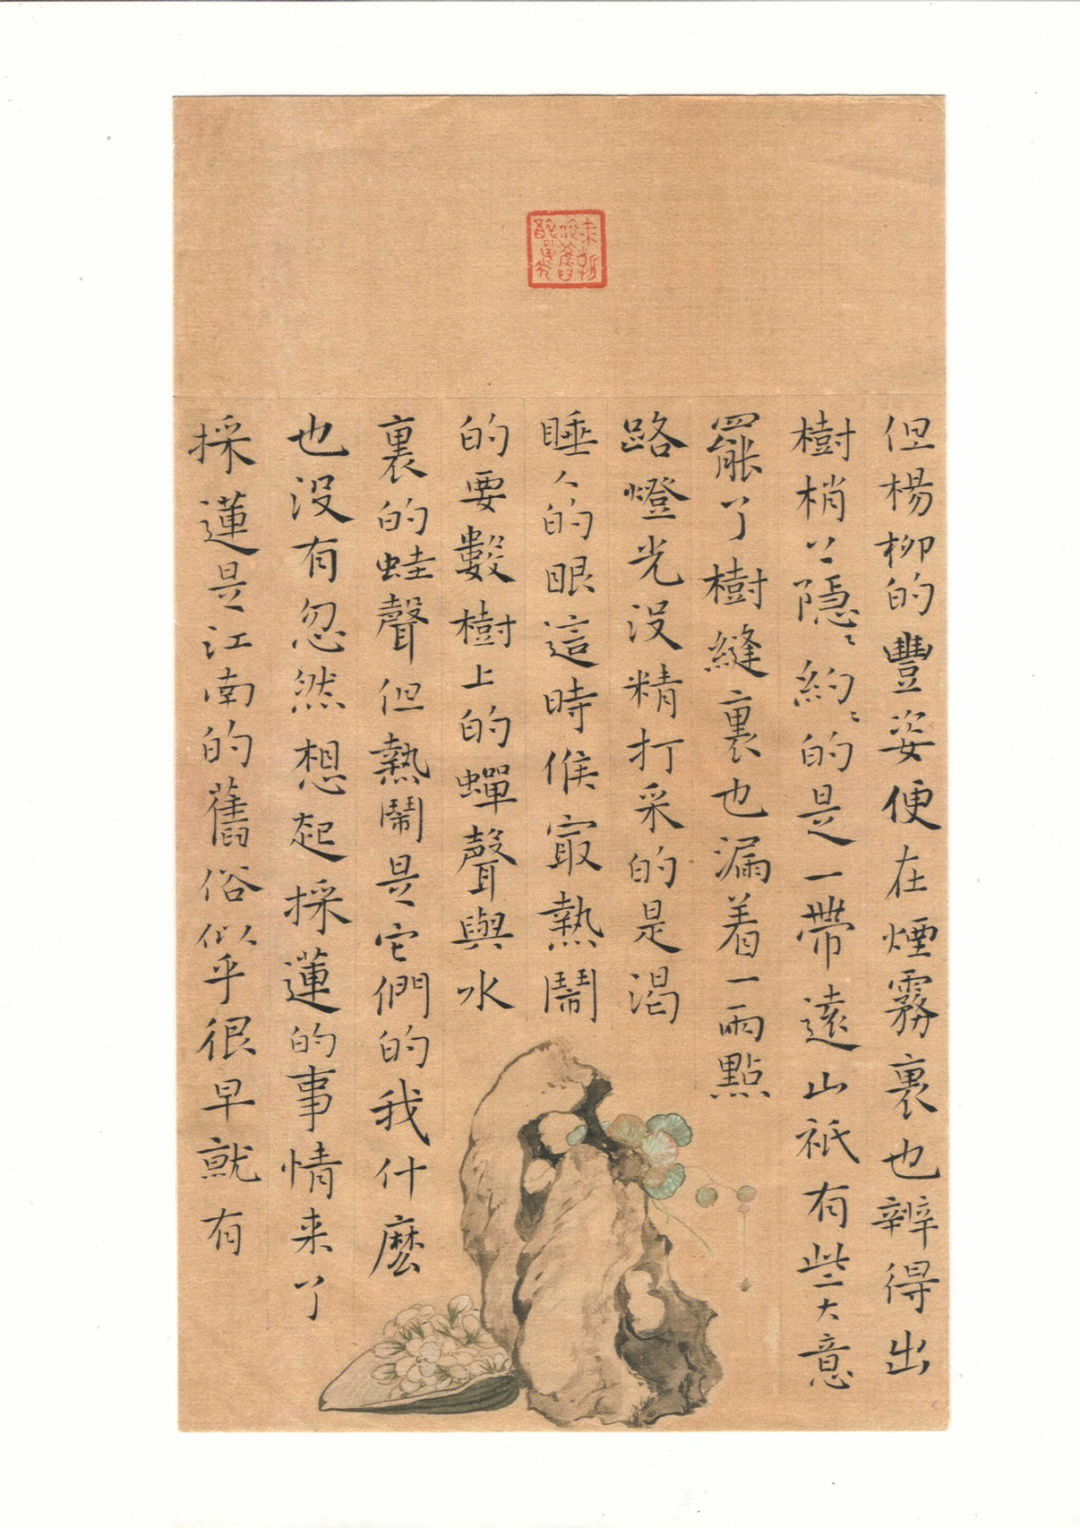 但楊柳的豐姿便在煙霧裏也辨得出
樹梢上隱〻約〻的是一帶遠山祇有些大意
罷了樹縫裏也漏着一兩點
路燈光没精打采的是渴
睡人的眼這時候㝡熱鬧
的要數樹上的蟬聲與水
裏的蛙聲但熱鬧是它們的我什麽
也没有忽然想起採蓮的事情来了
採蓮是江南的舊俗似乎很早就有